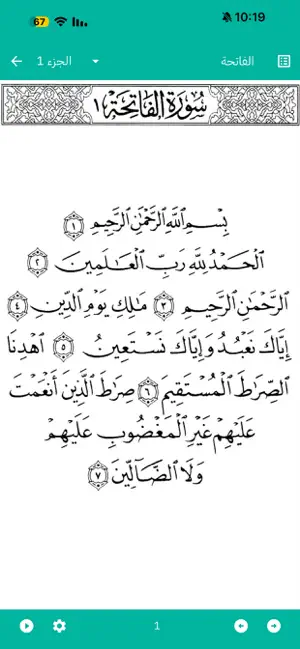 10:19
67
الفاتحة
الجزء 1
سُورَةُ الفَاتِحَةِ ١
بِسْمِ ٱللَّهِ ٱلرَّحْمَٰنِ ٱلرَّحِيمِ ١
ٱلْحَمْدُ لِلَّهِ رَبِّ ٱلْعَٰلَمِينَ ٢
ٱلرَّحْمَٰنِ ٱلرَّحِيمِ ٣ مَٰلِكِ يَوْمِ ٱلدِّينِ ٤
إِيَّاكَ نَعْبُدُ وَإِيَّاكَ نَسْتَعِينُ ٥ ٱهْدِنَا
ٱلصِّرَٰطَ ٱلْمُسْتَقِيمَ ٦ صِرَٰطَ ٱلَّذِينَ أَنْعَمْتَ
عَلَيْهِمْ غَيْرِ ٱلْمَغْضُوبِ عَلَيْهِمْ
وَلَا ٱلضَّآلِّينَ ٧
1